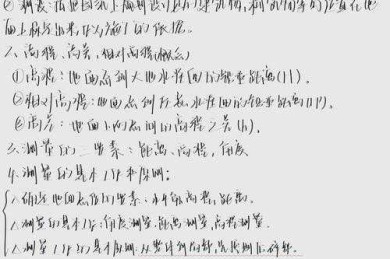 ② 测设:在地面上标定出来,作为施工的依据。
2、高程、高差、相对高程(概念)
① 高程:地面点到大地水准面的铅垂距离(H)。
② 相对高程:地面点到假定水准面的铅垂距离(H')。
③ 高差:地面上两点间的高程之差(h)。
3、测量的三要素:距离、高程、角度
4、测量的基本工作和原则:
1、确定地面点位的要素:水平角、高程、距离。
2、测量的基本工作:角度测量、距离测量、高程测量。
3、测量工作的基本原则:从整体到局部,先控制后碎部。